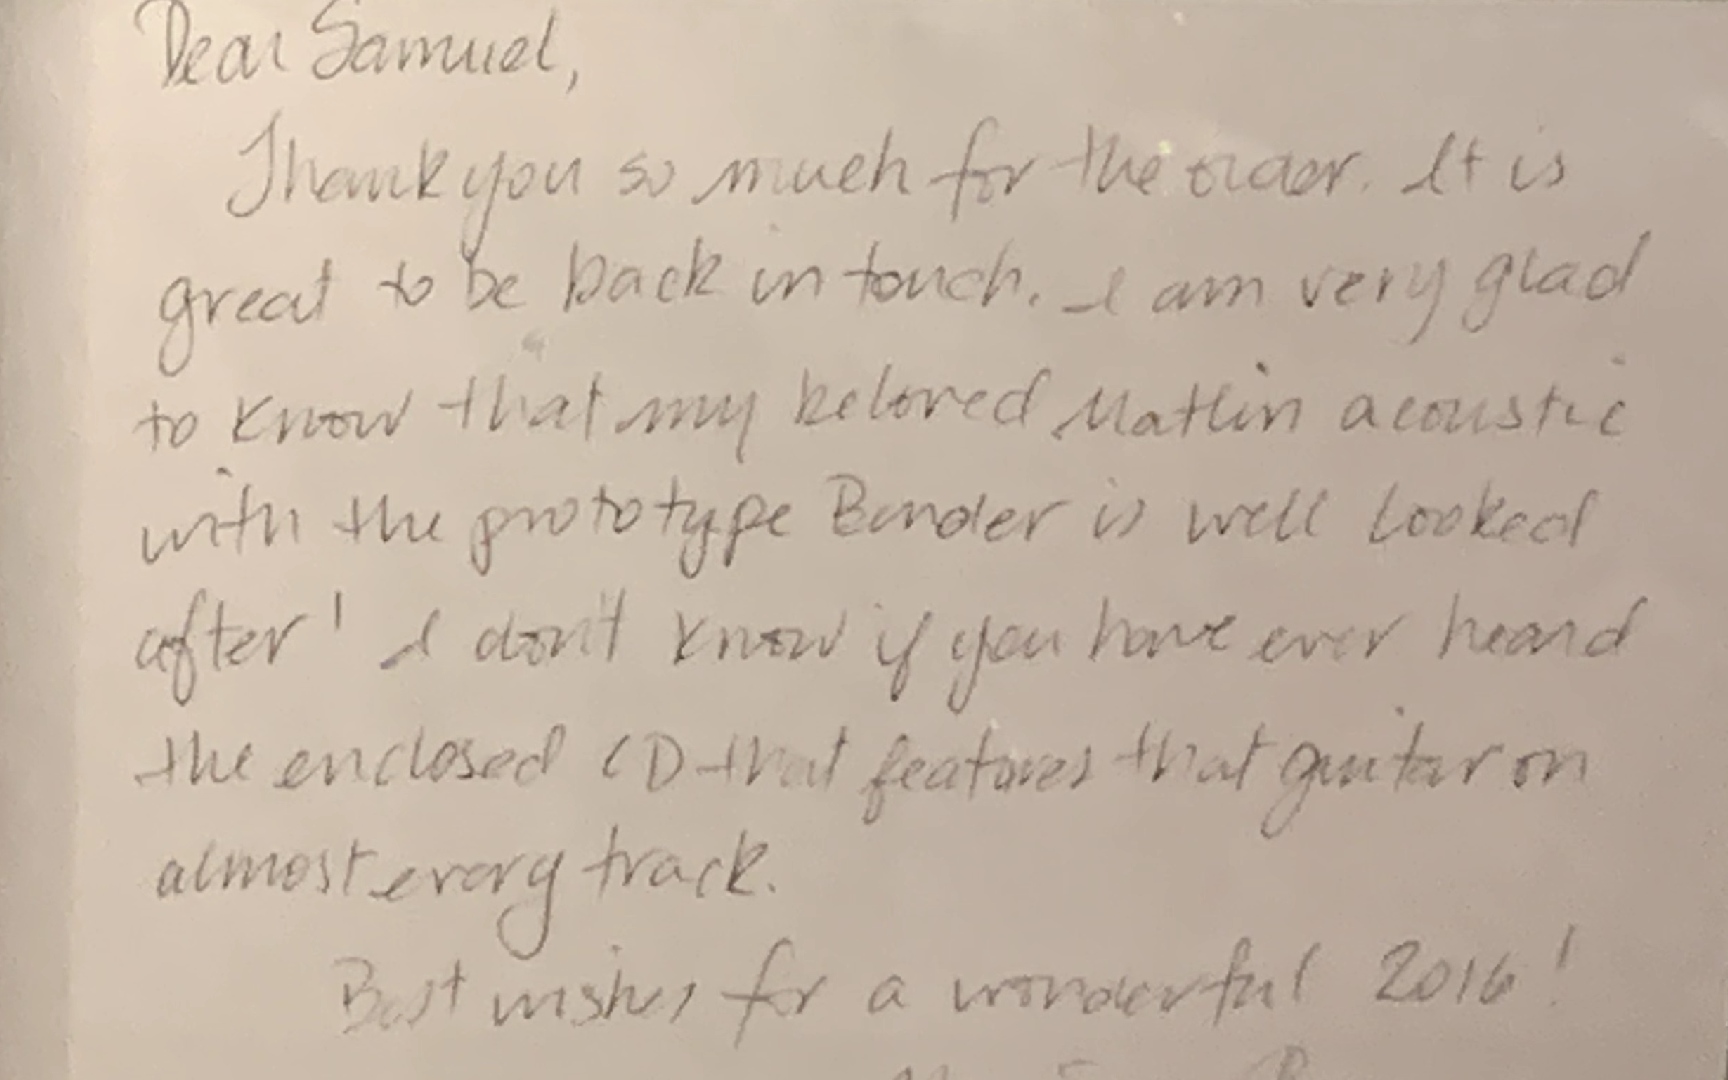 Dear Samuel,
Thank you so much for the order. It is
great to be back in touch. I am very glad
to know that my beloved Matlin acoustic
with the prototype Bender is well looked
after! I don't know if you have ever heard
the enclosed CD that features that guitar on
almost every track.
Best wishes for a wonderful 2016!